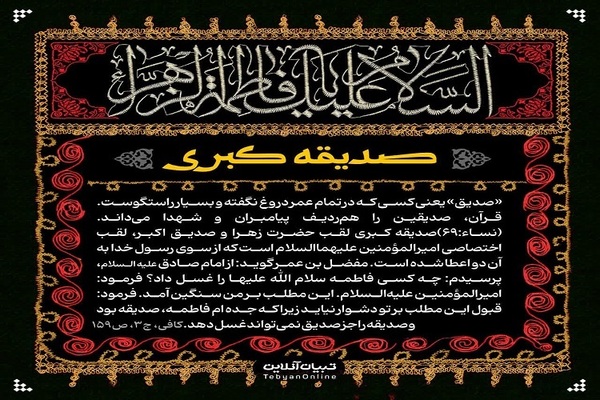 السلام علیک یا فاطمة الزهراء
صدیقه کبری
«صدیق» یعنی کسی که در تمام عمر دروغ نگفته و بسیار راستگوست.
قرآن، صدیقین را هم‌ردیف پیامبران و شهدا می‌داند.
(نساء:۶۹)صدیقه کبری لقب حضرت زهرا و صدیق اکبر، لقب
اختصاصی امیرالمؤمنین علیهما السلام است که از سوی رسول خدا به
آن دو اعطا شده است. مفضل بن عمر گوید: از امام صادق علیه‌السلام،
پرسیدم: چه کسی فاطمه سلام الله علیها را غسل داد؟ فرمود:
امیرالمؤمنین علیه‌السلام. این مطلب بر من سنگین آمد. فرمود:
قبول این مطلب بر تو دشوار نیاید زیرا که جده ام فاطمه، صدیقه بود
و صدیقه را جز صدیق نمی‌تواند غسل دهد. کافی، ج۳، ص۱۵۹
تبیان آنلاین
TebyanOnline